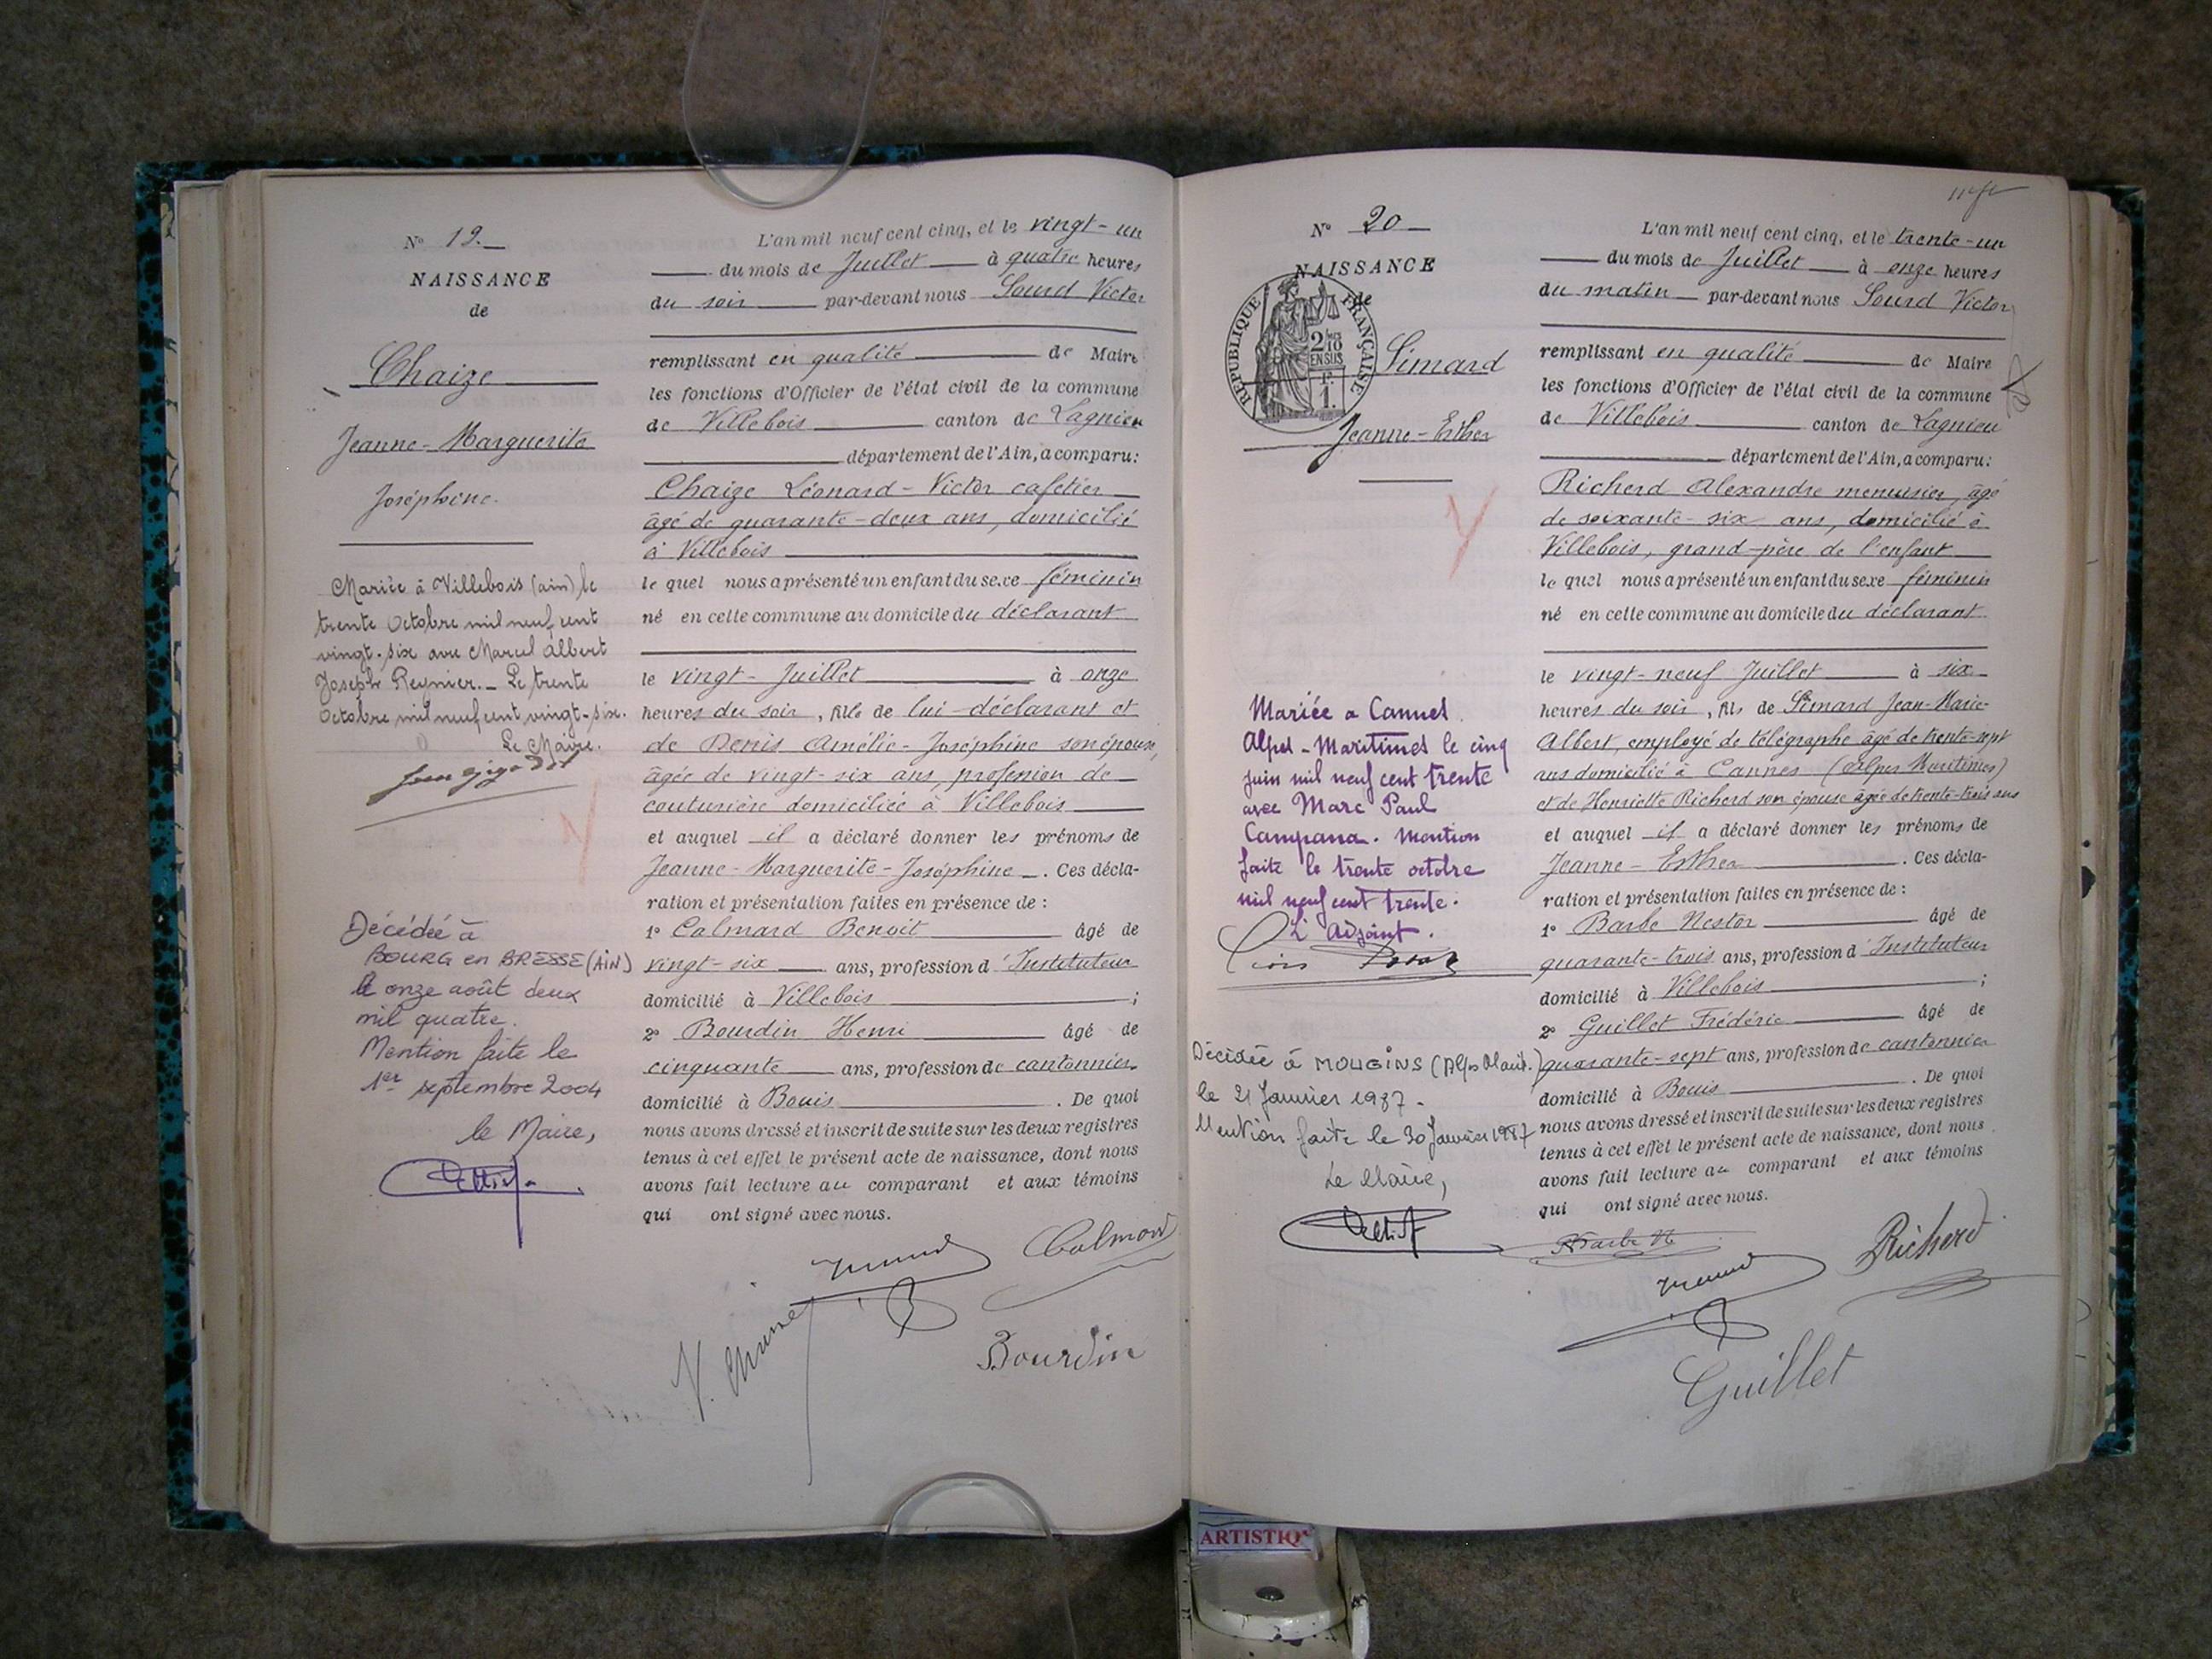 N° 19.
NAISSANCE
de
Chaize
Jeanne-Marguerite
Joséphine.
Mariée à Villebois (ain) le
trente Octobre mil neuf cent
vingt-six avec Marcel Albert
Joseph Reynier. _ Le trente
Octobre mil neuf cent vingt-six.
Le Maire.
Décédée à
BOURG en BRESSE (AIN)
le onze août deux
mil quatre.
Mention faite le
1er septembre 2004
le Maire,
L'an mil neuf cent cinq, et le vingt-un
du mois de Juillet à quatre heures
du soir par-devant nous Sourd Victor
remplissant en qualité de Maire
les fonctions d'Officier de l'état civil de la commune
de Villebois canton de Lagnieu
département de l'Ain, a comparu:
Chaize Léonard-Victor cafetier
âgé de quarante-deux ans, domicilié
à Villebois
le quel nous a présenté un enfant du sexe féminin
né en cette commune au domicile du déclarant
le vingt-Juillet à onze
heures du soir, fille de lui-déclarant et
de Denis Amélie-Joséphine son épouse,
âgée de vingt-six ans, profession de
couturière domiciliée à Villebois
et auquel il a déclaré donner les prénoms de
Jeanne-Marguerite-Joséphine. Ces décla-
ration et présentation faites en présence de :
1° Calmard Benoit âgé de
vingt-six ans, profession d'Instituteur
domicilié à Villebois ;
2° Bourdin Henri âgé de
cinquante ans, profession de cantonnier
domicilié à Bouis. De quoi
nous avons dressé et inscrit de suite sur les deux registres
tenus à cet effet le présent acte de naissance, dont nous
avons fait lecture au comparant et aux témoins
qui ont signé avec nous.
Calmard
Bourdin
N° 20
NAISSANCE
de
RÉPUBLIQUE FRANÇAISE
2/10
EN SUS
1.
Simard
Jeanne-Esther
Mariée a Cannet
Alpes-Maritimes le cinq
juin mil neuf cent trente
avec Marc Paul
Campana. Mention
faite le trente octobre
mil neuf cent trente.
L'Adjoint.
Décédée à MOUGINS (Alpes Marit.)
le 21 Janvier 1987-
Mention faite le 30 Janvier 1987
Le Maire,
L'an mil neuf cent cinq, et le trente-un
du mois de Juillet à onze heures
du matin par-devant nous Sourd Victor
remplissant en qualité de Maire
les fonctions d'Officier de l'état civil de la commune
de Villebois canton de Lagnieu
département de l'Ain, a comparu:
Richerd Alexandre menuisier, âgé
de soixante-six ans, domicilié à
Villebois, grand-père de l'enfant
le quel nous a présenté un enfant du sexe féminin
né en cette commune au domicile du déclarant
le vingt-neuf Juillet à six
heures du soir, fils de Simard Jean-Marie-
Albert, employé de télégraphe âgé de trente-sept
ans domicilié à Cannes (Alpes Maritimes)
et de Henriette Richerd son épouse âgée de trente-trois ans
et auquel il a déclaré donner les prénoms de
Jeanne-Esther. Ces décla-
ration et présentation faites en présence de :
1° Barbe Nestor âgé de
quarante-trois ans, profession d'Instituteur
domicilié à Villebois ;
2° Guillet Frédéric âgé de
quarante-sept ans, profession de cantonnier
domicilié à Bouis. De quoi
nous avons dressé et inscrit de suite sur les deux registres
tenus à cet effet le présent acte de naissance, dont nous
avons fait lecture au comparant et aux témoins
qui ont signé avec nous.
Barbe N
Richerd
Guillet
ARTISTIQ